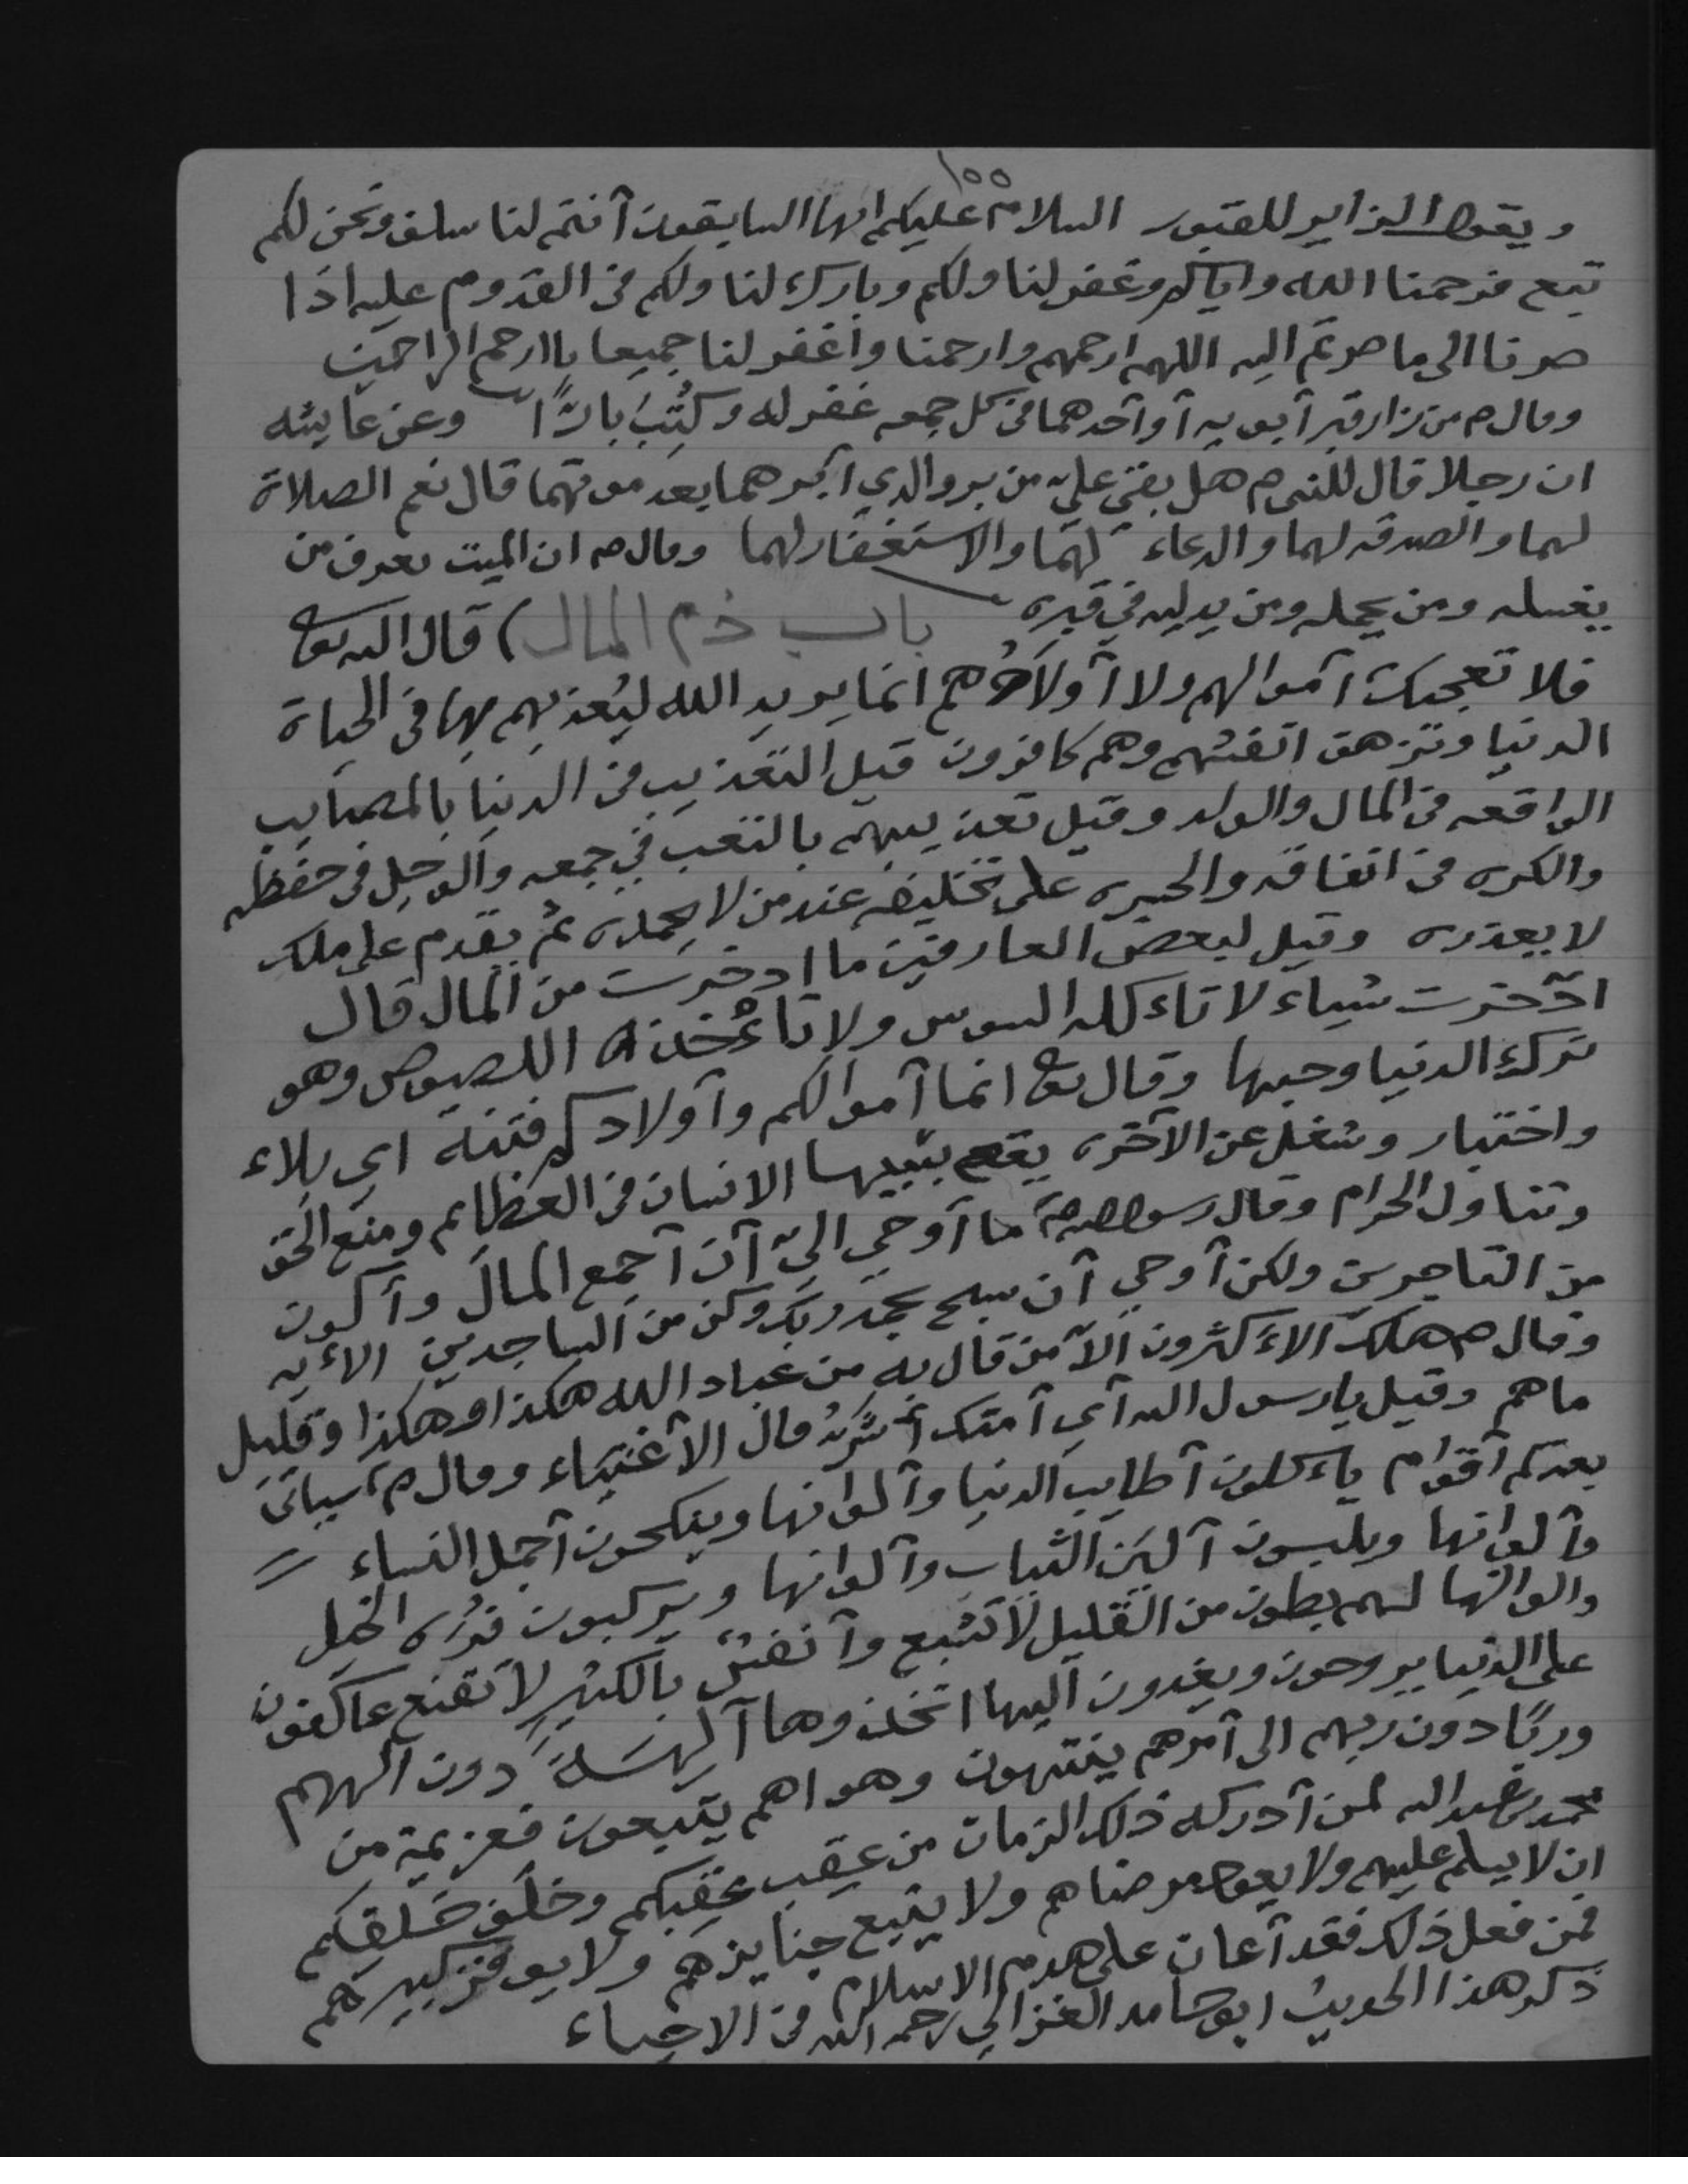 ١٥٥
ويقول الزاير للقبور السلام عليكم ايها السابقون آنتم لنا سلف ونحن لكم
تبع فرحمنا الله واياكم وغفر لنا ولكم وبارك لنا ولكم في القدوم عليه اذا
صرنا الى ما صرتم اليه اللهم ارحمهم وارحمنا واغفر لنا جميعا يا ارحم الراحمين
وقال م من زار قبر آبويه آو آحدهما في كل جمعه غفر له وكُتِبَ بارًّا وعن عايشه
ان رجلا قال للنبي م هل بقى علي من بر والدي آبرهما بعد موتهما قال نعم الصلاة
لهما والصدقه لهما والدعاء لهما والاستغفار لهما وقال م ان الميت يعرف من
يغسله ومن يحمله ومن يدليه في قبره باب ذم المال ) قال الله تعا
فلا تعجبك آموالهم ولا آولادُهم انما يريد الله ليُعذبهم بها في الحياة
الدنيا وتزهق انفسهم وهم كافرون قيل التعذيب في الدنيا بالمصايب
الواقعه في المال والولد وقيل تعذيبهم بالتعب في جمعه والوجل في حفظه
والكره في انفاقه والحسره على تخليفه عند من لا يحمده ثم يقدم على ملك
لا يعذره وقيل لبعض العارفين ما ادخرت من المال قال
ادّخرت شياء لا تاءكله السوس ولا تاءخذه اللصوص وهو
ترك الدنيا وحبها وقال تعا انما آموالكم وآولادكم فتنة اي بلاء
واختبار وشغل عن الآخره يقع بسببها الانسان في العظايم ومنع الحق
وتناول الحرام وقال رسول الله م ما آوحي اليّ آن آجمع المال وآكون
من التاجرين ولكن آوحي آن سبح بحمد ربك وكن من الساجدين الاءيه
وقال م هلك الاءكثرون الاّ من قال به من عباد الله هكذا وهكذا وقليل
ما هم وقيل يا رسول الله آي آمتك آشرُّ قال الآغنياء وقال م سياتى
بعدكم آقوام ياءكلون آطايب الدنيا وآلوانها وينكحون آجمل النساء
وآلوانها ويلبسون آلين الثياب وآلوانها ويركبون فره الخيل
والوانها لهم بطون من القليل لا تشبع وآنفس بالكثير لا تقنع عاكفون
على الدنيا يروحون ويغدون اليها اتخذوها آلهسة دون الههم
وربًا دون ربهم الى آمرهم ينتهون وهواهم يتبعون فعزيمة من
محمد بن عبد الله لمن آدركه ذلك الزمان من عقب عقبكم وخلف خلفكم
ان لا يسلم عليهم ولا يعود مرضاهم ولا يتبع جنايزهم ولا يوقر كبيرهم
فمن فعل ذلك فقد آعان على هدم الاسلام
ذكر هذا الحديث ابو حامد الغزالي رحمه الله في الاحياء